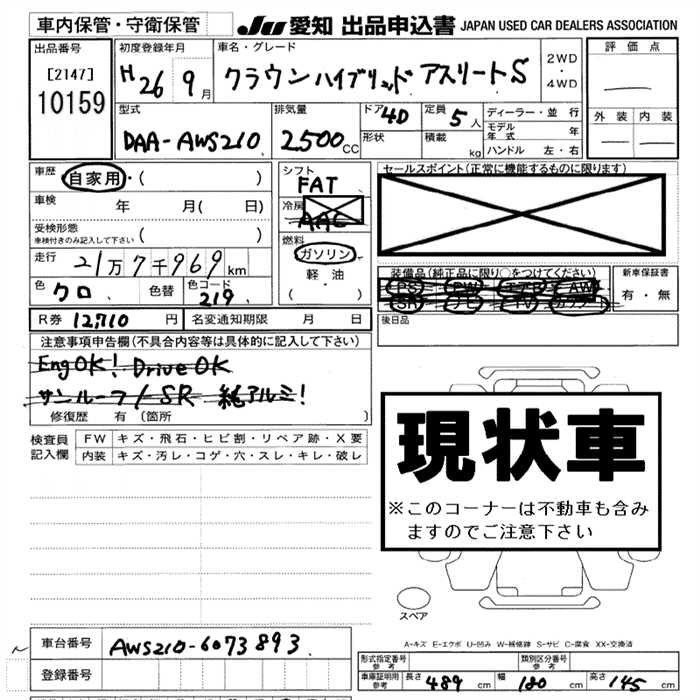 車内保管・守衛保管
JU 愛知 出品申込書 JAPAN USED CAR DEALERS ASSOCIATION
出品番号
[2147]
10159
初度登録年月
H 26 9月
車名・グレード
クラウンハイブリッド アスリートS
2WD
・
4WD
評価点
外装 内装
型式
DAA-AWS210
排気量
2500CC
ドア 4D
形状
定員 5人
積載 kg
ディーラー・並行
モデル年式 年
ハンドル 左・右
車歴 自家用・( )
車検 年 月( 日)
受検形態
車検付きのみ記入して下さい ( )
走行 21万7千969km
色 クロ 色替 色コード 219
シフト
FAT
冷房
AAC
燃料
ガソリン
・
軽油
( )
セールスポイント(正常に機能するものに限ります)
装備品(純正品に限り○をつけてください)
PS PW エアB AW
SR ナビ TV カワシート
新車保証書
有・無
後日品
R券 12,710 円 名変通知期限 月 日
注意事項申告欄(不具合内容等は具体的に記入して下さい)
EngOK! DriveOK
サンルーフ/SR 純アルミ!
修復歴 有(箇所 )
検査員記入欄
FW キズ・飛石・ヒビ割・リペア跡・X要
内装 キズ・汚レ・コゲ・穴・スレ・キレ・破レ
現状車
※このコーナーは不動車も含み
ますのでご注意下さい
スペア
A-キズ E-エクボ U-凹み W-補修跡 S-サビ C-腐食 XX-交換済
車台番号 AWS210-6073893
登録番号
形式指定番号 参考
類別区分番号 参考
車庫証明用 参考 長さ 489cm 幅 180cm 高さ 145cm